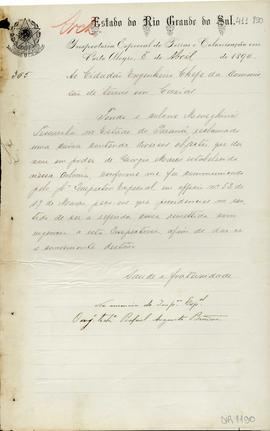 Estado do Rio Grande do Sul,
Inspectoria Especial de Terras e Colonisação em
Porto Alegre, 5 de Abril de 1890.
365
Ao Cidadão Engenheiro Chefe da Commis-
são de terras em Caxias
Tendo o colono Meneghini
em Estado do Paraná, reclamado
uma caixa contendo diversos objectos que dei-
xou em poder de Moraes estabelecido
nessa Colonia, conforme me foi communicado
pelo Sr. Inspector Especial em officio nº 52 de
17 de Março providencieis no sen-
tido de ser a referida caixa remettida com
urgencia a esta Inspectoria, afim de dar-se
o conveniente destino.
Saude e fraternidade
Na ausencia do Insp. Esp.
Rafael Augusto